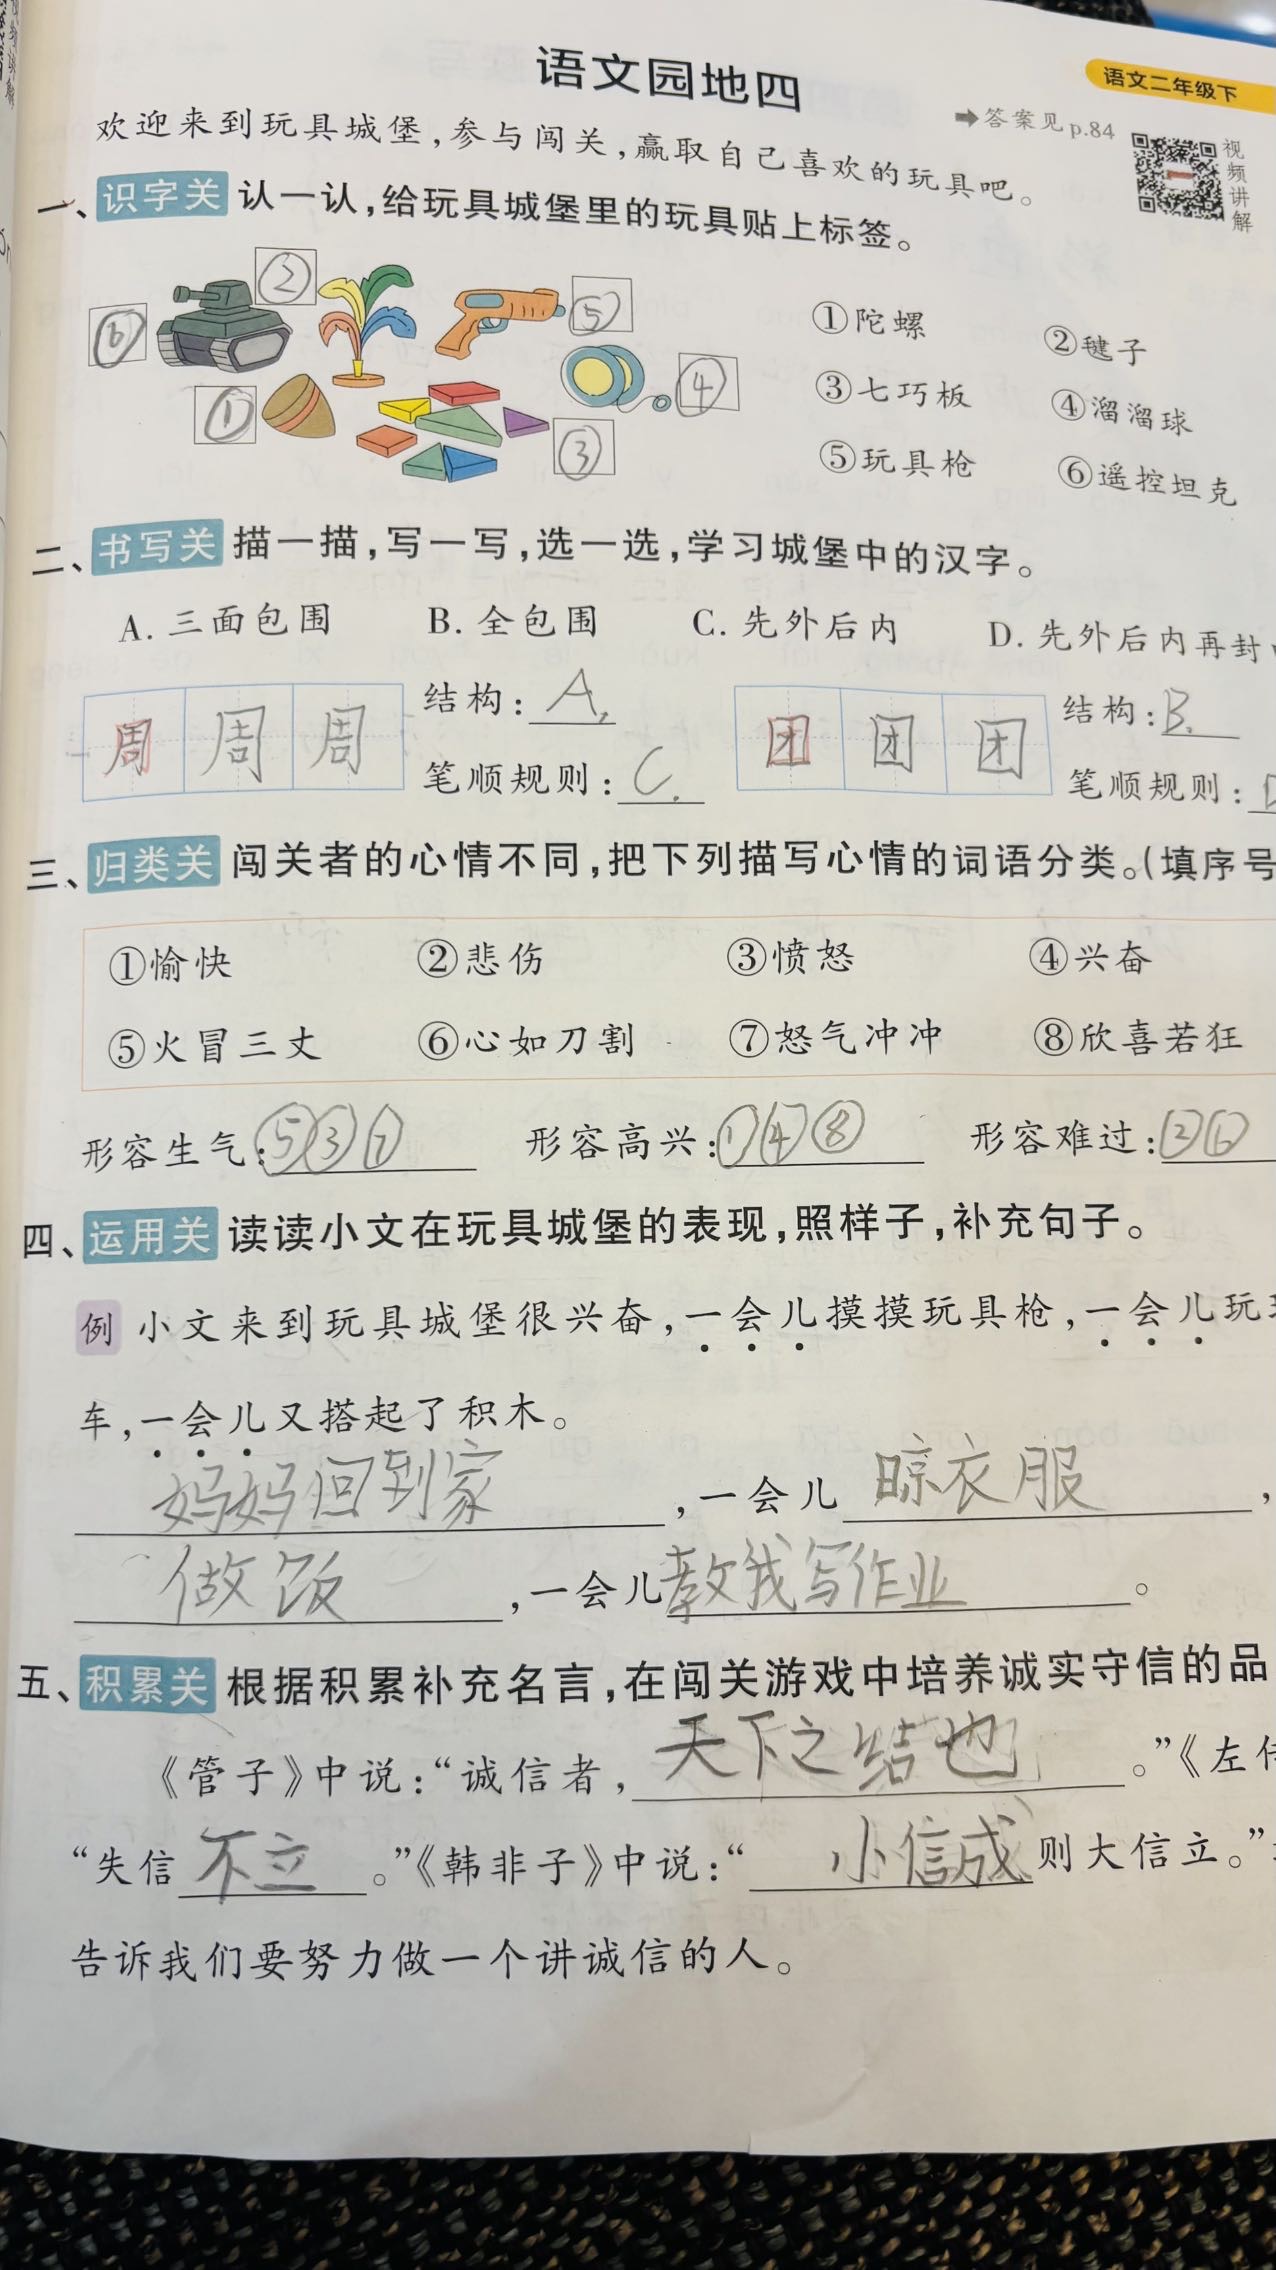 语文园地四
语文二年级下
➡答案见p.84
视频讲解
欢迎来到玩具城堡,参与闯关,赢取自己喜欢的玩具吧。
一、识字关 认一认,给玩具城堡里的玩具贴上标签。
⑥ ② ⑤ ① ④ ③
①陀螺 ②毽子
③七巧板 ④溜溜球
⑤玩具枪 ⑥遥控坦克
二、书写关 描一描,写一写,选一选,学习城堡中的汉字。
A. 三面包围 B. 全包围 C. 先外后内 D. 先外后内再封
周 周 周 结构: A. 团 团 团 结构: B.
笔顺规则: C. 笔顺规则:
三、归类关 闯关者的心情不同,把下列描写心情的词语分类。(填序号
①愉快 ②悲伤 ③愤怒 ④兴奋
⑤火冒三丈 ⑥心如刀割 ⑦怒气冲冲 ⑧欣喜若狂
形容生气:⑤③⑦ 形容高兴:①④⑧ 形容难过:②⑥
四、运用关 读读小文在玩具城堡的表现,照样子,补充句子。
例 小文来到玩具城堡很兴奋,一会儿摸摸玩具枪,一会儿玩
车,一会儿又搭起了积木。
妈妈回到家,一会儿晾衣服,
做饭,一会儿教我写作业。
五、积累关 根据积累补充名言,在闯关游戏中培养诚实守信的品
《管子》中说:“诚信者,天下之结也。”《左
“失信不立。”《韩非子》中说:“小信成则大信立。”
告诉我们要努力做一个讲诚信的人。